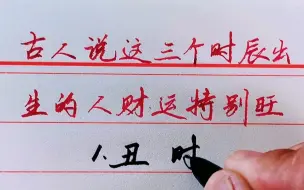 古人说这三个时辰出
生的人财运特别旺
1.丑时